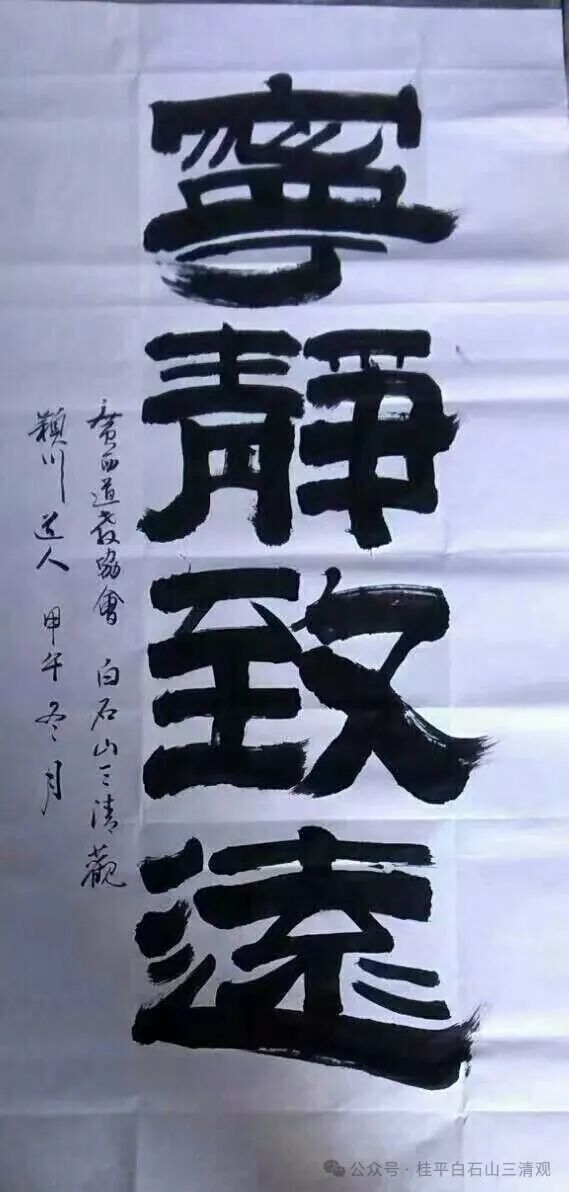 寧靜致遠
廣西道教協會 白石山三清觀
穎川道人 甲午冬月
公众号·桂平白石山三清观